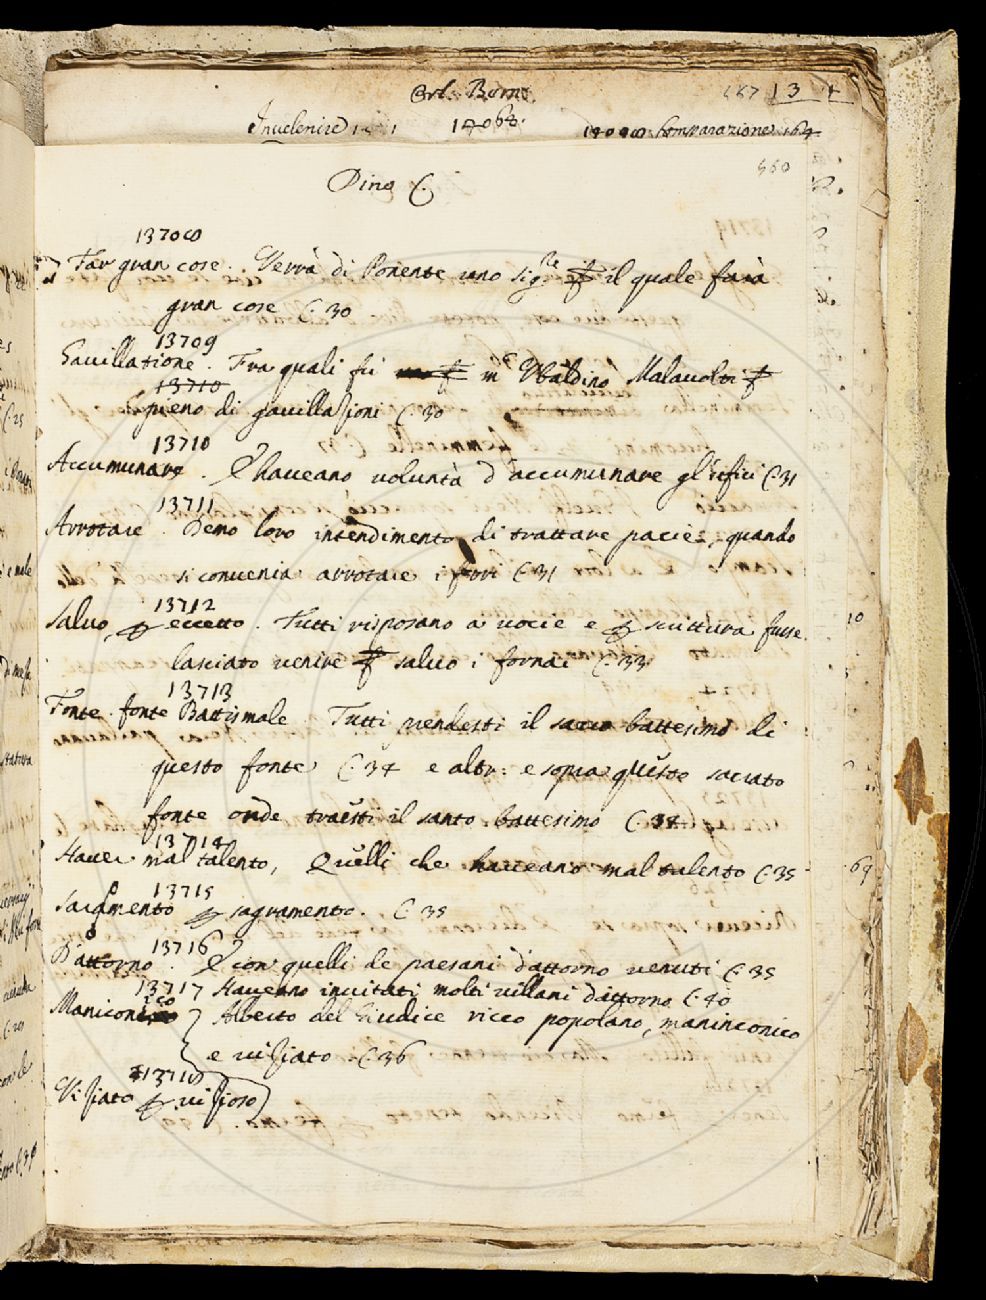 Orl. Born.
13
Inuelenire
14068.
Comparazione 164
560
Dino C.
13708
Far gran cose. Verrà di Ponente uno sig.re il quale farà
gran cose C. 30
13709
Gauillatione. Fra quali fu m. Vbaldino Malauolti
13710
e pieno di gauillaʃioni C. 30
13710
Accumunare. E haueano voluntà d'accumunare gl'ufici C. 31
13711
Arrotare. Demo loro intendimento di trattare pacie, quando
si conuenia arrotare i fori C. 31
13712
Saluo, ꝑ eccetto. Tutti risposano a uocie e ꝑ scrittura fusse
lasciato uenire saluo i fornai C. 33
13713
Fonte. fonte Battismale. Tutti prendesti il sacro battesimo di
questo fonte C. 34 e altr: e sopra questo sacrato
fonte onde traesti il santo battesimo C. 34
13714
Hauer mal talento, Quelli che haueano mal talento C. 35
13715
Sacramento ꝑ sagramento. C. 35
13716
D'attorno. E con quelli de paesani d'attorno uenuti C. 35
13717 Haueano inuitati molti uillani dattorno C. 40
Maninconico Alberto del Giudice ricco popolano, maninconico
e uiʃiato C. 36
13718
Viʃiato ꝑ uiʃioso